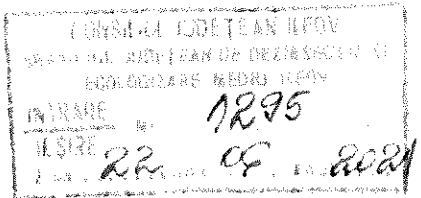 CONSILIUL JUDEȚEAN ILFOV
JUDEȚEAN DE DEZINSECȚIE ȘI
ECOLOGIZARE MEDIU ILFOV
INTRARE Nr. 1295
IEȘIRE
22 2021